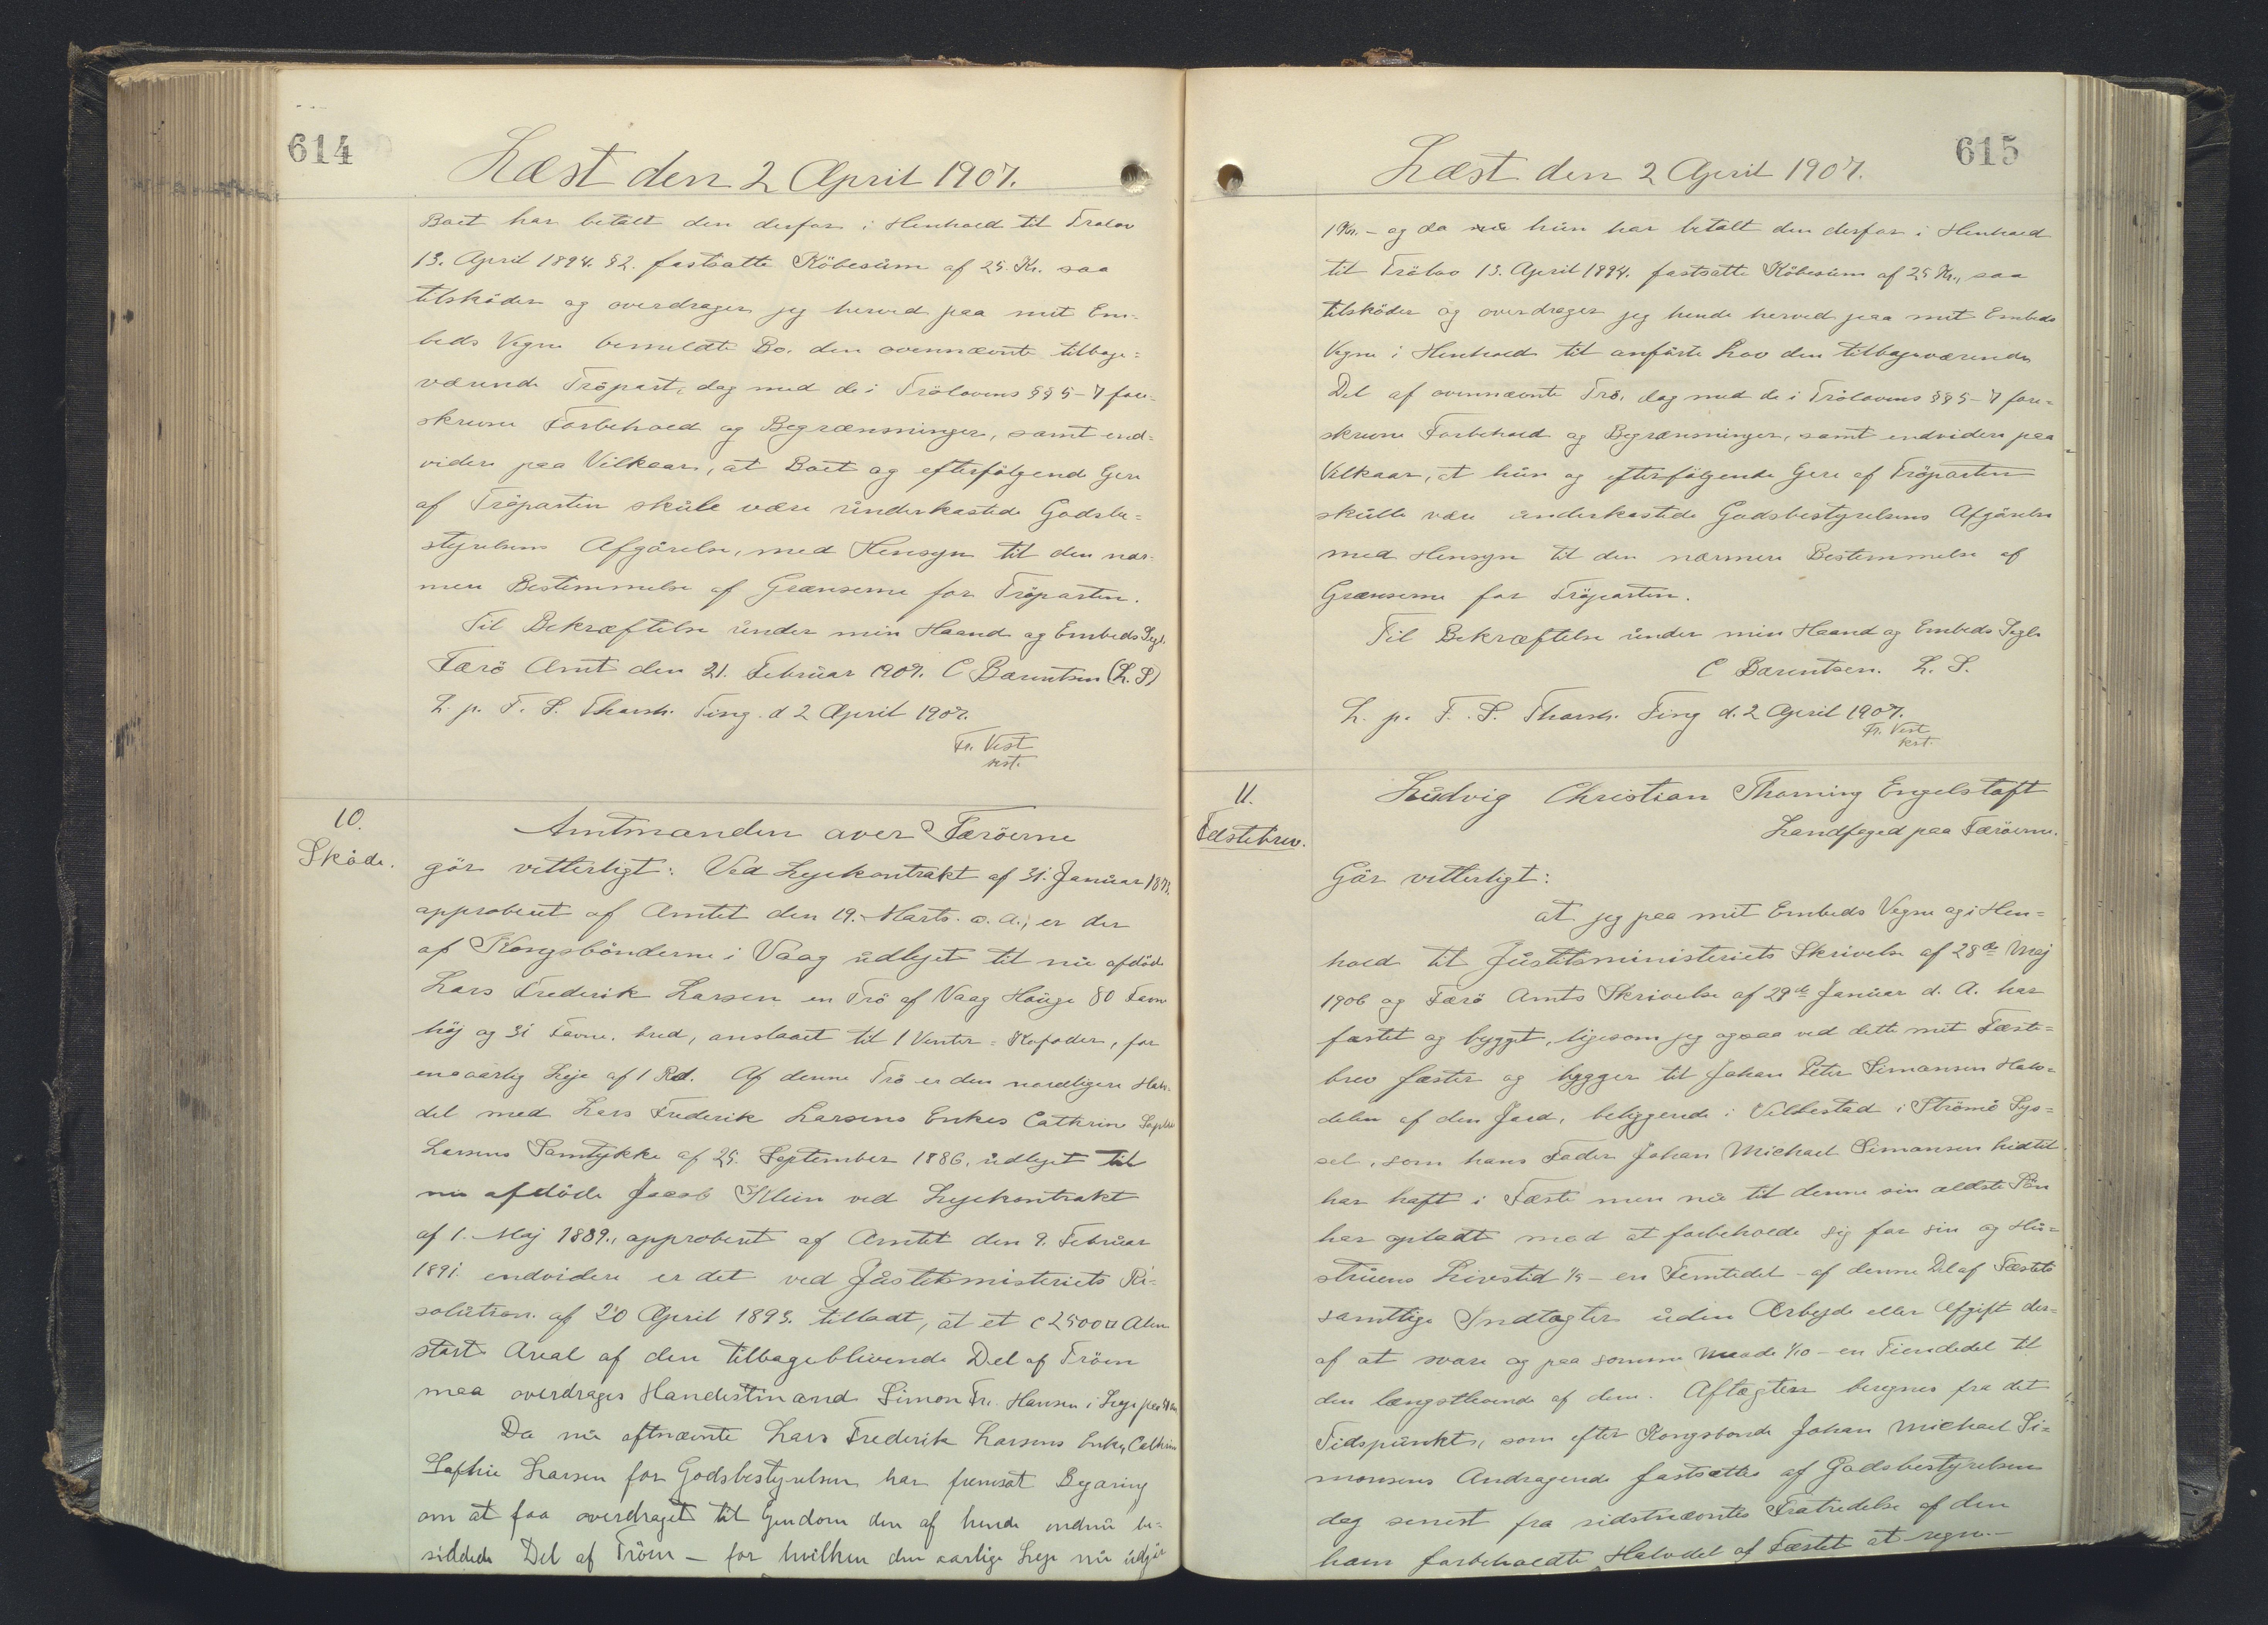 614
Læst den 2 April 1907.
Boet har betalt den derfor i Henhold til Trølov
13. April 1894. § 2. fastsatte Köbesum af 25. Kr. saa
tilsköder og overdrager jeg herved paa mit Em-
beds Vegne bemeldte Bo. den ovennævnte tilbage=
værende Tröpart, dog med de i Trölovens §§ 5-7 fore-
skrevne Forbehold og Begrænsninger, samt end=
videre paa Vilkaar, at Boet og efterfölgende Ejere
af Tröparten skulle være underkastede Godsbe=
styrelsens Afgörelse, med Hensyn til den nær-
mere Bestemmelse af Grænserne for Tröparten.
Til Bekræftelse under min Haand og Embeds Segl.
Færö Amt den 21. Februar 1907. C Bærentsen (L. S)
L. p. F. S. Thorsh. Ting. d 2 April 1907.
Fr. Vest
kst.
10.
Sköde.
Amtmanden over Færöerne
gör vitterligt: Ved Lejekontrakt af 31. Januar 1873.
approberet af Amtet den 19. Marts. s. a., er der
af Kongsbönderne i Vaag udlejet til nu afdöde
Lars Frederik Larsen en Trö af Vaag Hauge 80 Favne
höj og 31 Favne. bred, anslaaet til 1 Vinter=Kofoder, for
en aarlig Leje af 1 Rd. Af denne Trö er den nordligere Halv-
del med Lars Frederik Larsens Enkes Cathrin Sophie
Larsens Samtykke af 25. September 1886. udlejet til
nu afdöde Jacob Klein ved Lejekontrakt
af 1. Maj 1889., approberet af Amtet den 9. Februar
1891. endvidere er det ved Justitsmisteriets Re-
solution. af 20 April 1893. tilladt, at et c 2500 □ Alen
stort Areal af den tilbageblivende Del af Tröen
maa overdrages Handestinand Simon Fr. Hansen i Leje paa
Da nu oftnævnte Lars Frederik Larsens Enke, Cathrin
Sophie Larsen for Godsbestyrelsen har fremsat Begæring
om at faa overdraget til Ejendom den af hende endnu be-
siddede Del af Tröen – for hvilken den aarlige Leje nu udgör
615
Læst den 2 April 1907.
1 Kr. – og da nu hun har betalt den derfor i Henhold
til Trölov 13. April 1894. fastsatte Köbesum af 25 Kr., saa
tilsköder og overdrager jeg hende herved paa mit Embeds
Vegne i Henhold til anförte Lov den tilbageværende
Del af ovennævnte Trö, dog med de i Trölovens §§ 5-7 fore=
skrevne Forbehold og Begrænsninger, samt endvidere paa
Vilkaar, at hun og efterfölgende Ejere af Tröparten
skulle være underkastede Godsbestyrelsens Afgörelse
med Hensyn til den nærmere Bestemmelse af
Grænserne for Tröparten.
Til Bekræftelse under min Haand og Embeds Segl.
C Bærentsen. L. S.
L. p. F. S. Thorsh. Ting d. 2 April 1907.
Fr. Vest
kst.
11.
Fæstebrev.
Ludvig Christian Thorning Engelstoft
Landfoged paa Færöerne.
Gör vitterligt:
at jeg paa mit Embeds Vegne og i Hen=
hold til Justitsministeriets Skrivelse af 28de Maj
1906 og Færö Amts Skrivelse af 29de Januar d. A. har
fæstet og bygget, ligesom jeg ogsaa ved dette mit Fæste=
brev fæster og bygger til Johan Peter Simonsen Halv=
delen af den Jord, beliggende i Velbestad i Strömö Sys=
sel, som hans Fader Johan Michael Simonsen hidtil
har haft i Fæste men nu til denne sin ældste Sön
har opladt mod at forbeholde sig for sin og Hu=
struens Livstid 1/5 – en Femtedel – af denne Del af Fæstets
samtlige Indtægter uden Arbejde eller Afgift der=
af at svare og paa samme Maade 1/10 – en Tiendedel til
den længstlevende af dem. Aftægten beregnes fra det
Tidspunkt, som efter Kongsbonde Johan Michael Si=
monsens Andragende fastsættes af Godsbestyrelsen
dog senest fra sidstnævntes Fratrædelse af den
ham forbeholdte Halvdel af Fæstet at regne. –